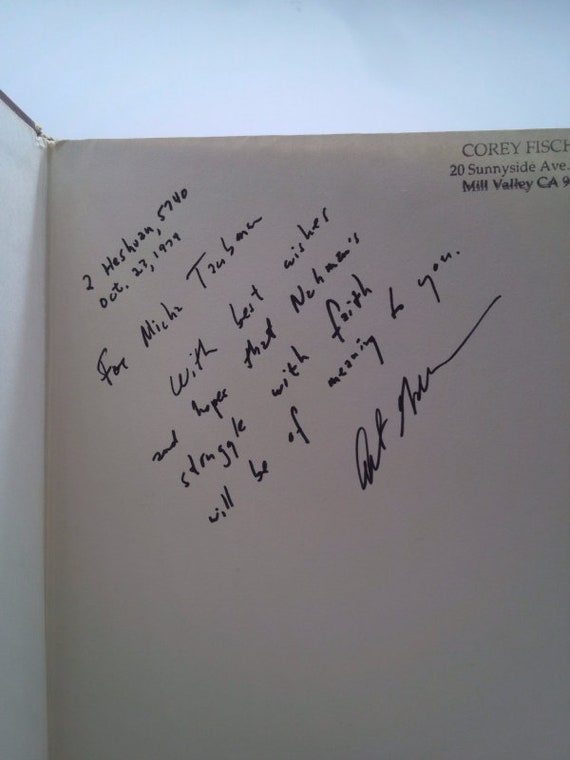 COREY FISCH
20 Sunnyside Ave.
Mill Valley CA 9
2 Heshvan, 5740
Oct. 23, 1979
For Micha Taubman
With best wishes
and hopes that Nahman's
struggle with faith
will be of meaning to you.
Art